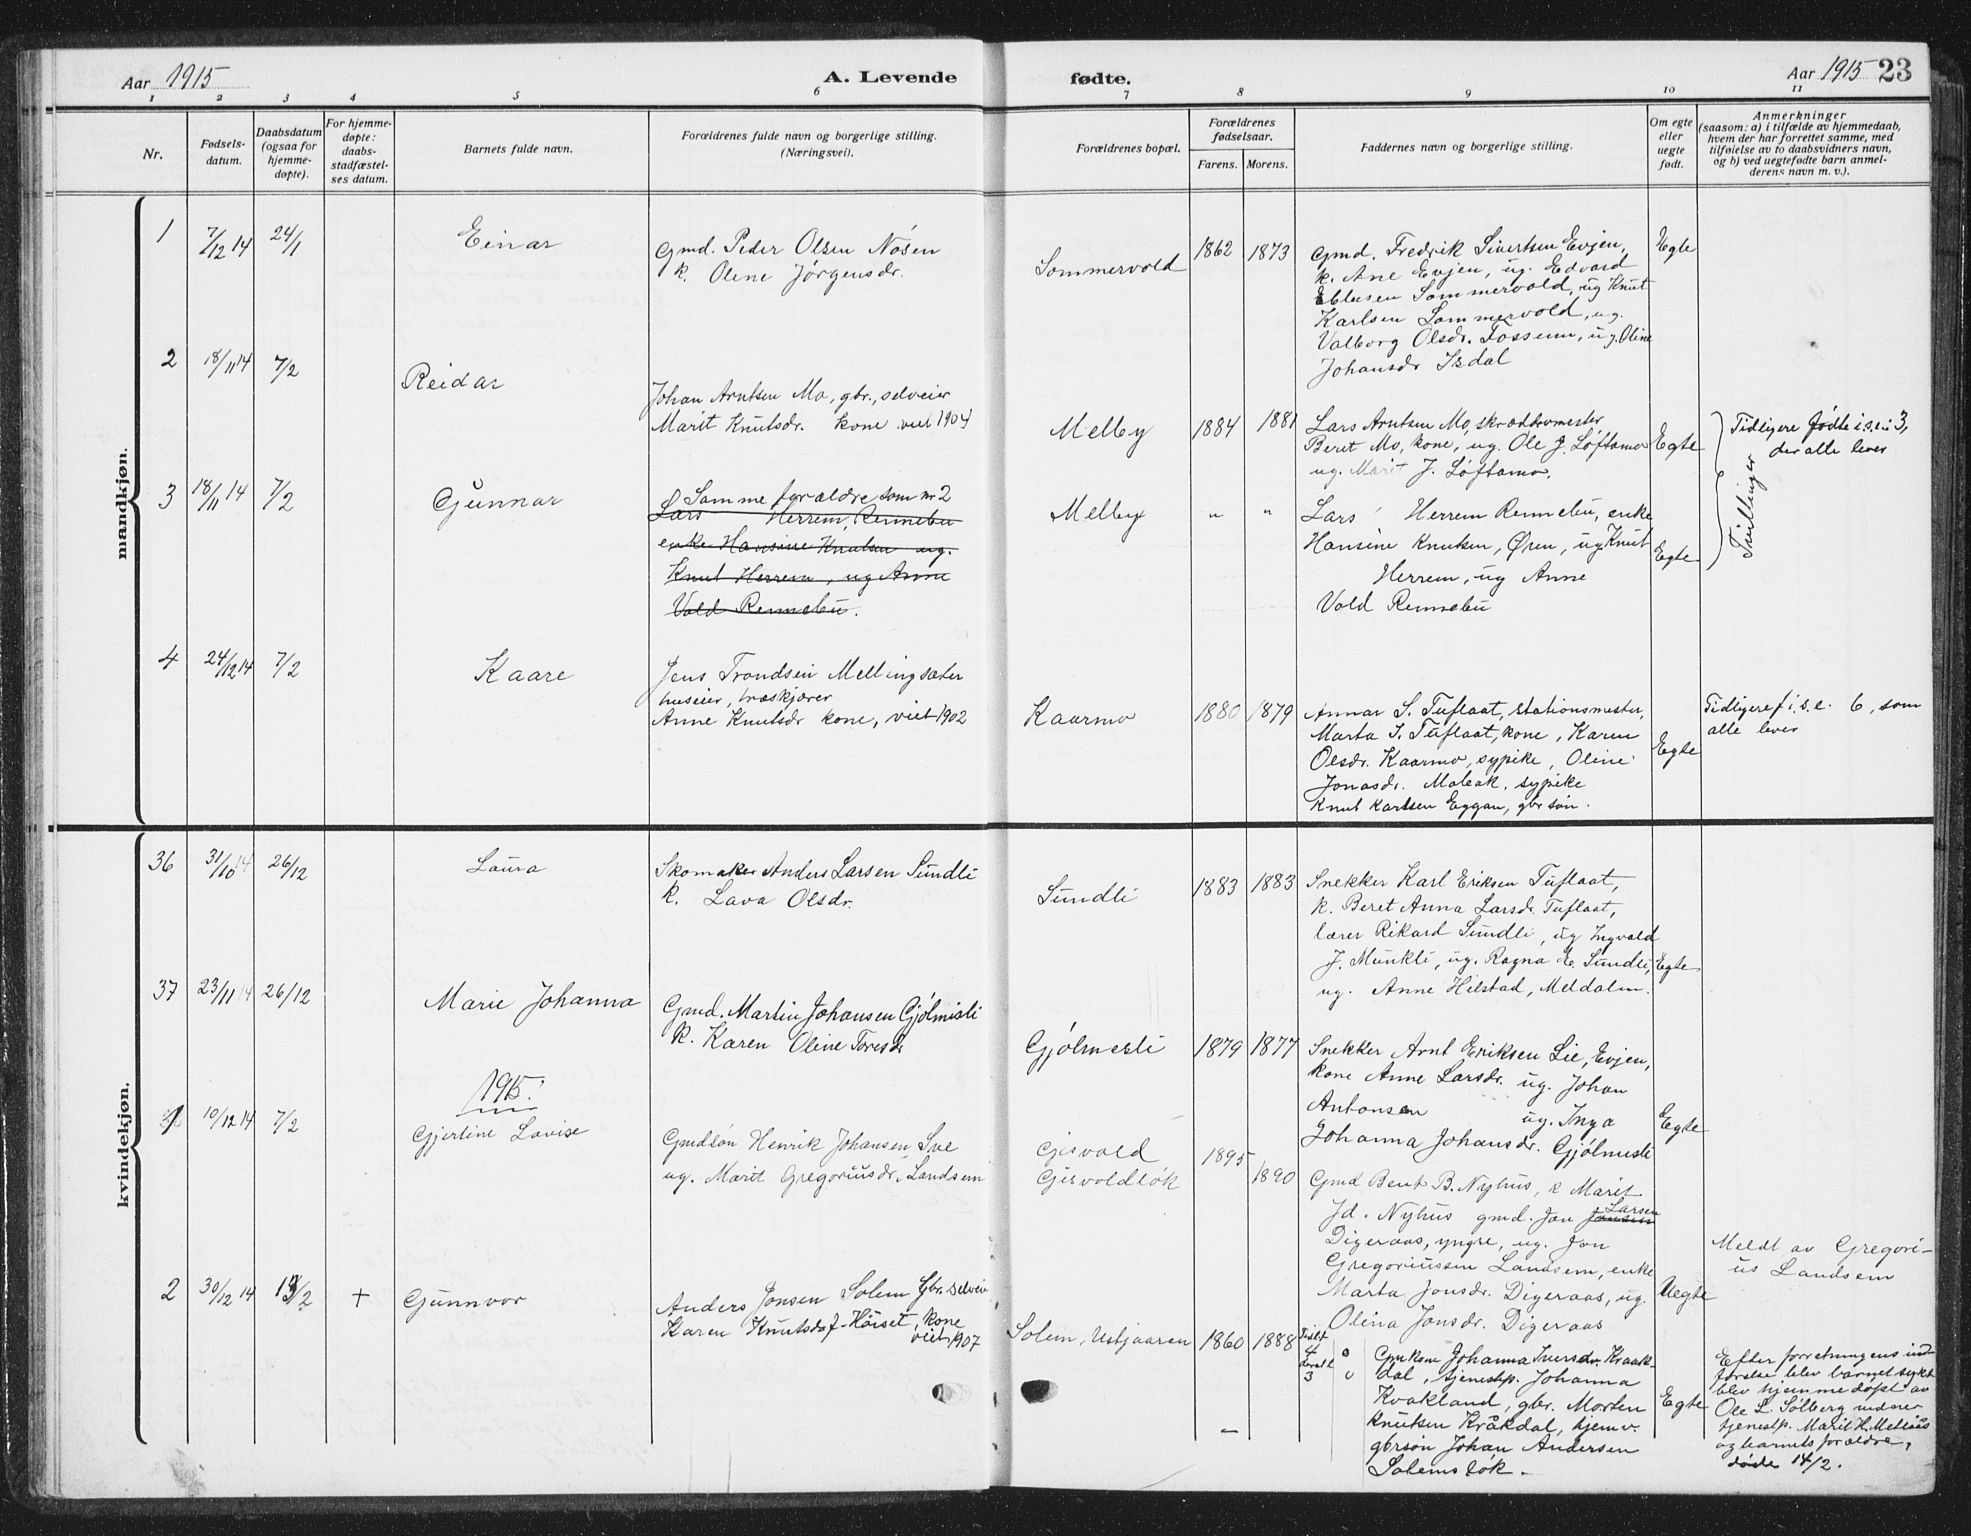 Aar 1915
A. Levende
fødte.
Aar 1915 23
1 2 3 4 5 6 7 8 9 10 11
Nr.
Fødsels-
datum.
Daabsdatum
(ogsaa for
hjemme-
døpte).
For hjemme-
døpte:
daabs-
stadfæstel-
ses datum.
Barnets fulde navn.
Forældrenes fulde navn og borgerlige stilling.
(Næringsvei).
Forældrenes bopæl.
Forældrenes
fødselsaar.
Farens. Morens.
Faddernes navn og borgerlige stilling.
Om egte
eller
uegte
født.
Anmerkninger
(saasom: a) i tilfælde av hjemmedaab,
hvem der har forrettet samme, med
tilføielse av to daabsvidners navn,
og b) ved uegtefødte barn anmel-
derens navn m. v.).
mandkjøn.
1 7/12 14 24/1 Einar
Gmd. Peder Olsen Nøsen
k. Oline Jørgensdr.
Sommervold 1862 1873
Gmd. Fredrik Sivertsen Evjen,
k. Ane Evjen, ug. Edvard
Ellefsen Sommervold, ug Knut
Karlsen Sommervold, ug.
Valborg Olsdr. Fossem, ug. Oline
Johansdr Isdal
Egte
2 18/11 14 7/2 Reidar
Johan Arntsen Mo, gbr., selveier
Marit Knutsdr. kone viet 1904
Melby 1884 1881
Lars Arntsen Mo, skræddermester
Beret Mo, kone, ug. Ole J. Løftamo
ug. Marit J. Løftamo.
Egte
Tidligere fødte i. s. e. i 3,
der alle lever
Tvillinger
3 18/11 14 7/2 Gunnar
Samme forældre som nr 2
Lars Herrem, Rennebu
enke Hansine Knutsen ug.
Knut Herrem, ug Anne
Vold Rennebu.
Melby " "
Lars Herrem Rennebu, enke
Hansine Knutsen, Øren, ug Knut
Herrem, ug Anne
Vold Rennebu
Egte
4 24/12 14 7/2 Kaare
Jens Trondsen Mellingsæter
huseier, træskjærer
Anne Knutsdr kone, viet 1902
Kaarmo 1880 1879
Annar S. Tuflaat, stationsmester,
Marta S. Tuflaat, kone, Karen
Olsdr. Kaarmo, sypike, Oline
Jonasdr. Moleak, sypike
Knut Karlsen Eggan, gbr søn.
Egte
Tidligere f i. s. e. 6, som
alle lever
kvindekjøn.
36 31/10 14 26/12 Laura
Skomaker Anders Larsen Sundli
k. Lava Olsdr.
Sundli 1883 1883
Snekker Karl Eriksen Tuflaat,
k. Beret Anna Larsdr. Tuflaat,
lærer Rikard Sundli, ug Ingvald
J. Munkli, ug. Ragna E. Sundli,
ug. Anne Hilstad, Meldalen.
Egte
37 23/11 14 26/12 Marie Johanna
Gmd. Martin Johansen Gjølmisli
k. Karen Oline Toresdr
Gjølmesli 1879 1877
Snekker Arnt Eriksen Lie, Evjen,
kone Anne Larsdr. ug. Johan
Antonsen ug. Inga
Johanna Johansdr. Gjølmesli
Egte
1915.
1 10/12 14 7/2 Gjertine Lovise
Gmdsøn Henrik Johansen Sve
ug. Marit Gregoriusdr. Landsem
Gisvold
Gisvoldløk
1895 1890
Gmd Bent B. Nyhus, k Marit
Jd. Nyhus gmd. Jon Jonsen Larsen
Digeraas, yngre, ug. Jon
Gregoriussen Landsem, enke
Marta Jonsdr. Digeraas, ug.
Olina Jonsdr. Digeraas
Uegte
Meldt av Gregori-
us Landsem
2 30/12 14 13/2 + Gunnvor
Anders Jonsen Solem Gbr. selveier
Karen Knutsdr f. Hoiset, kone
viet 1907
Solem, Ustjaaren 1860 1888
4
3
Gmkone Johanna Iversdr. Kraak-
dal, tjenestp. Johanna
Kvakland, gbr. Morten
Knutsen Kråkdal, hjemv.
gbrsøn Johan Andersen
Solemsløk.
Egte
Efter forretningens ind-
førelse blev barnet sykt
blev hjemmedøpt av
Ole L. Sølberg vidner
tjenestp. Marit H. Metliaas
og barnets forældre,
døde 14/2.